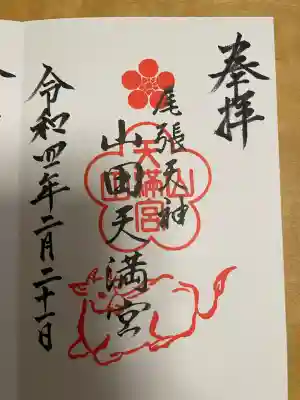 奉拝
尾張天神
山田天満宮
山田
天満宮
令和四年二月二十一日